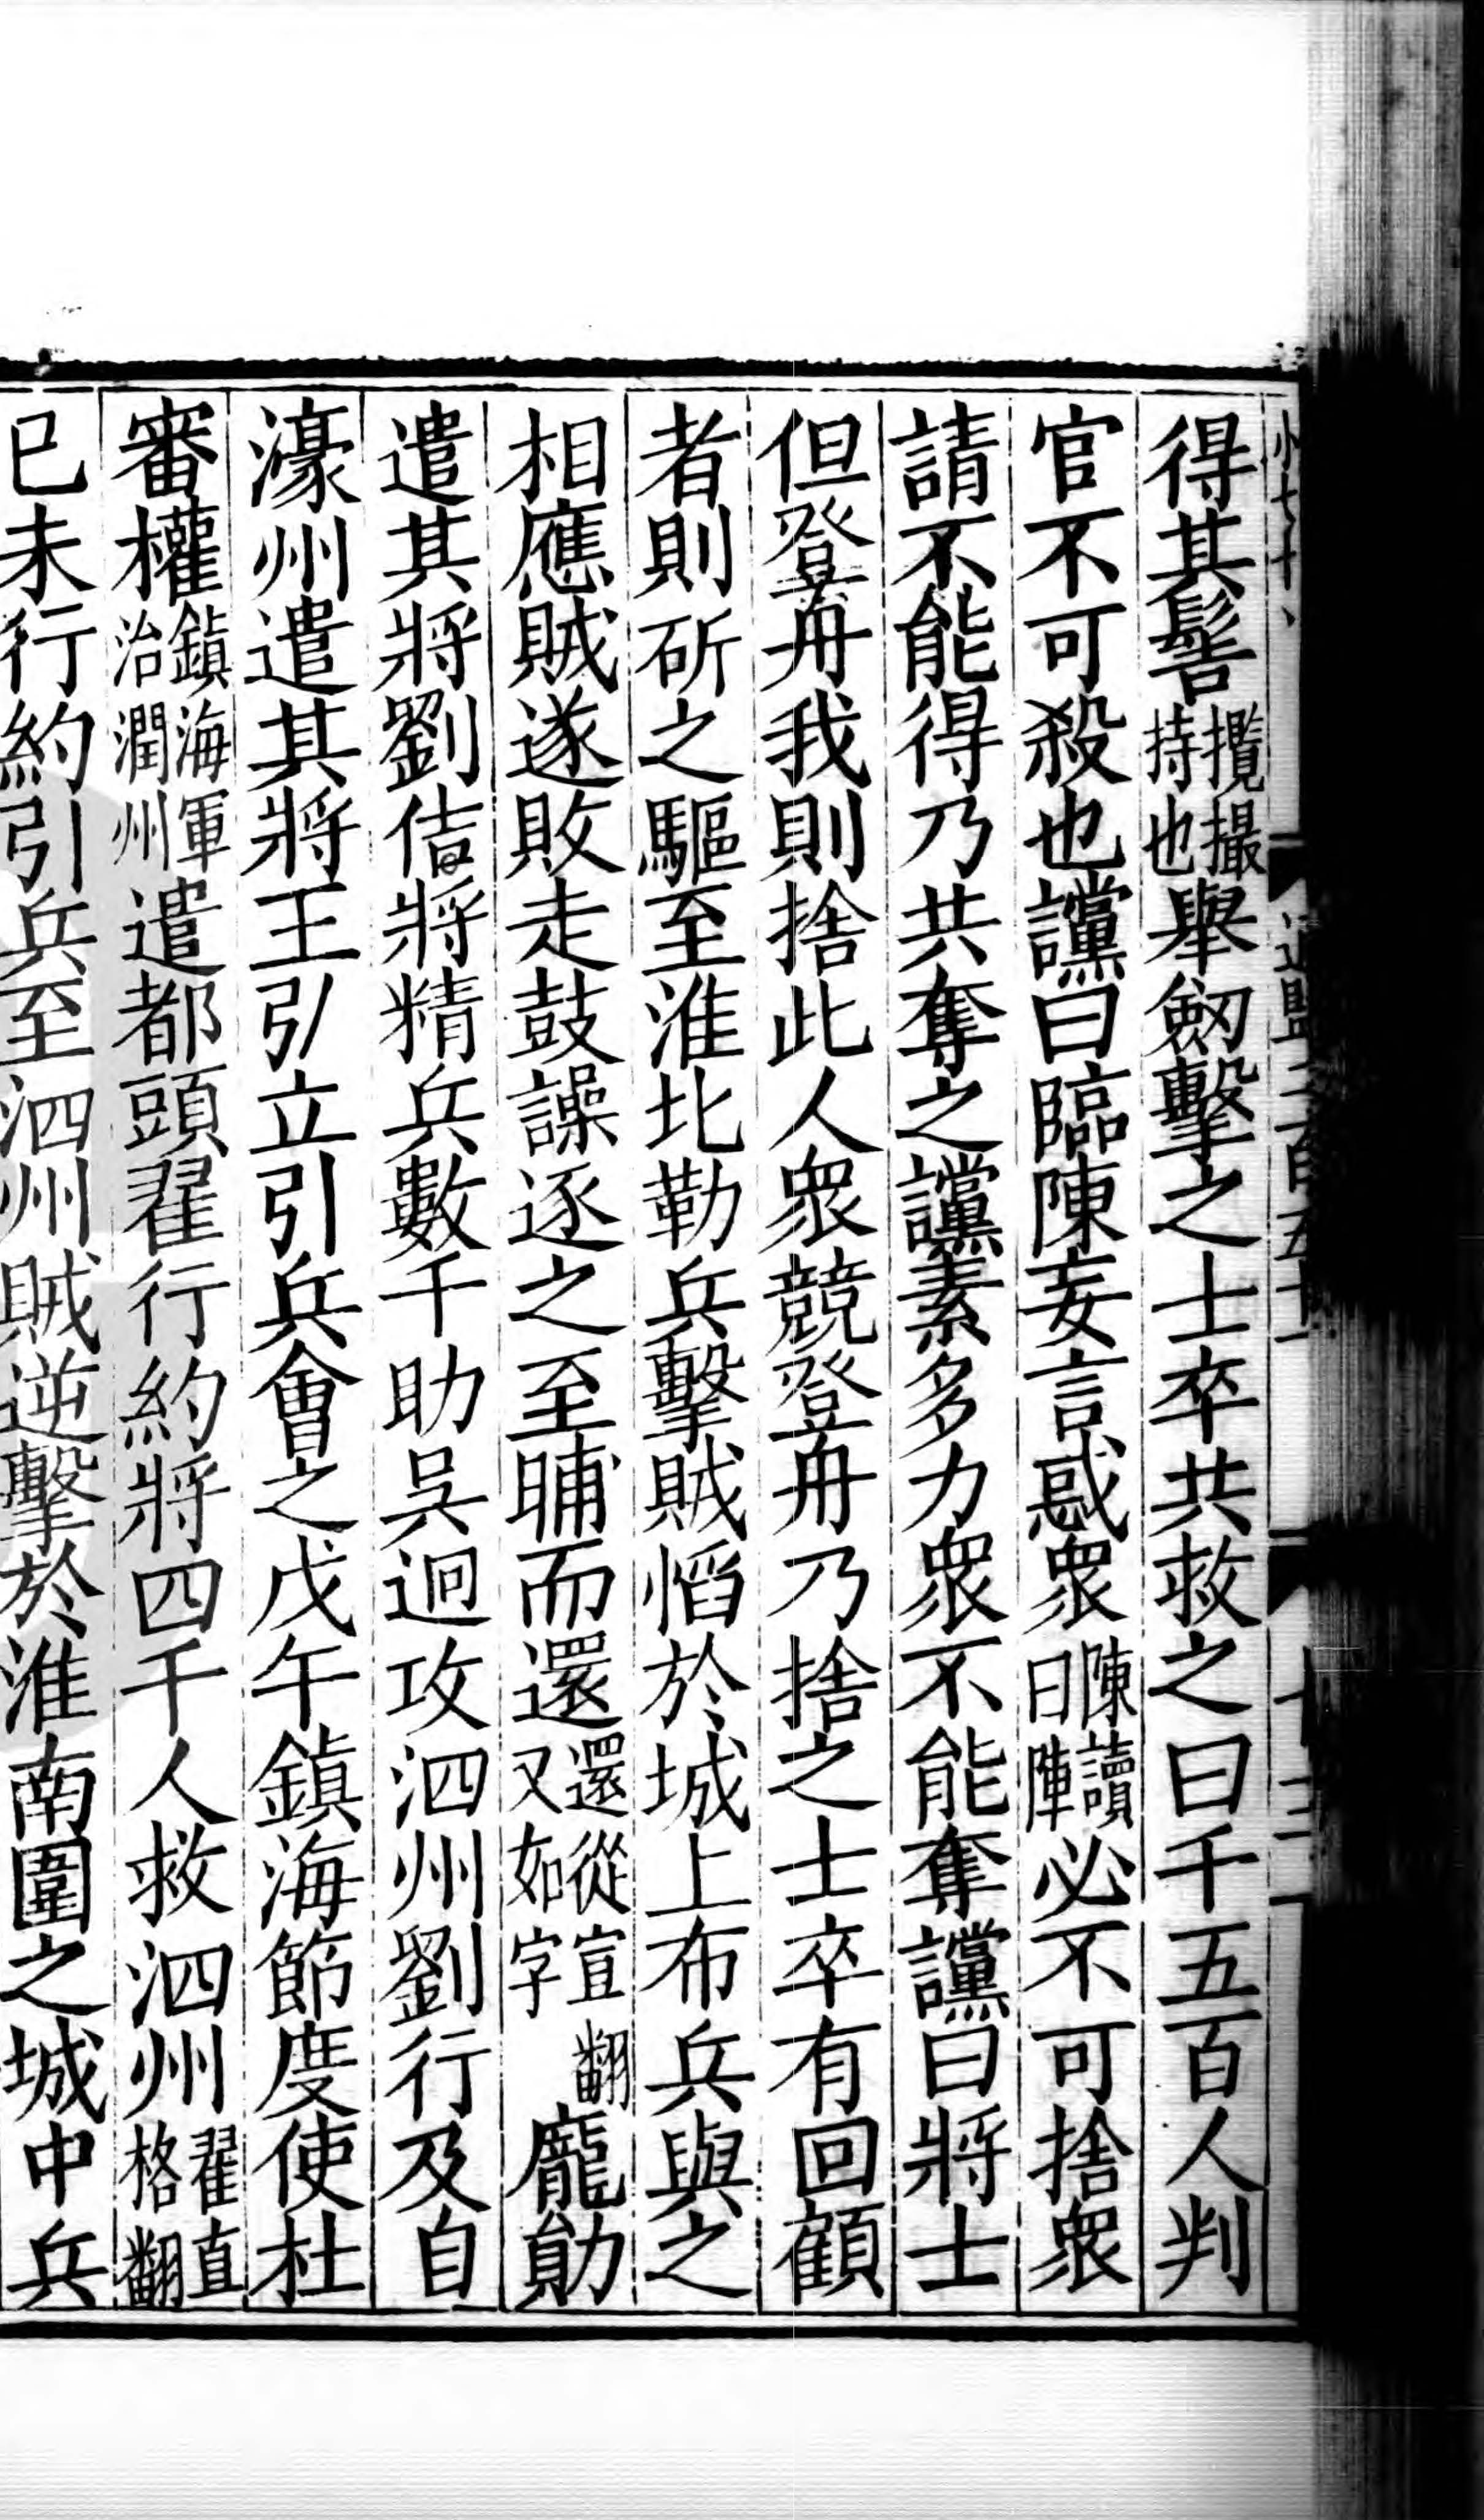 得其髻攬撮持也舉劒擊之士卒共救之曰千五百人判
官不可殺也讜曰臨陳妄言惑衆陳讀曰陣必不可捨衆
請不能得乃共奪之讜素多力衆不能奪讜曰將士
但登舟我則捨此人衆競登舟乃捨之士卒有回顧
者則斫之驅至淮北勒兵擊賊慆於城上布兵與之
相應賊遂敗走鼓譟逐之至晡而還還從宣翻又如字龐勛
遣其將劉佶將精兵數千助吳迥攻泗州劉行及自
濠州遣其將王引立引兵會之戊午鎮海節度使杜
審權鎮海軍治潤州遣都頭翟行約將四千人救泗州翟直格翻
已未行約引兵至泗州賊逆擊於淮南圍之城中兵